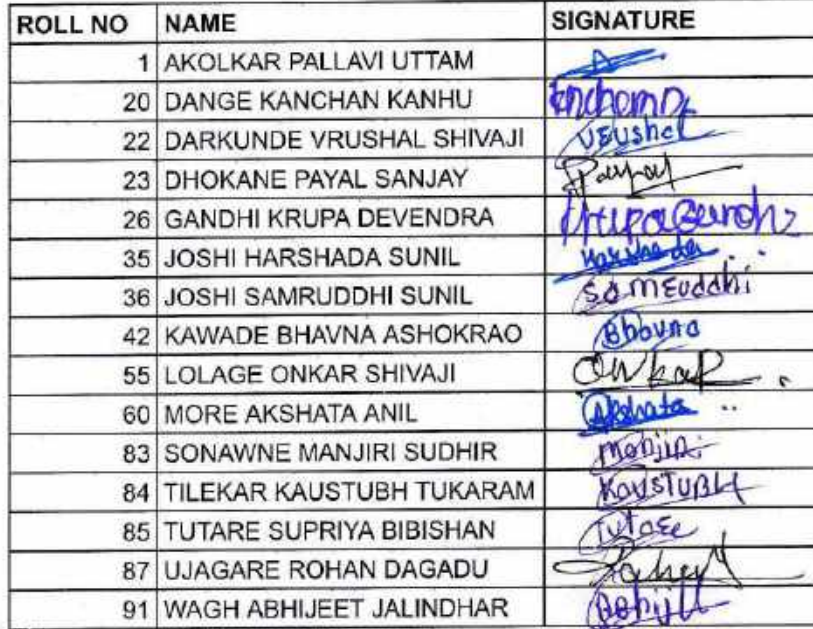 ROLL NO NAME SIGNATURE
1 AKOLKAR PALLAVI UTTAM
20 DANGE KANCHAN KANHU
22 DARKUNDE VRUSHAL SHIVAJI
23 DHOKANE PAYAL SANJAY Payal
26 GANDHI KRUPA DEVENDRA
35 JOSHI HARSHADA SUNIL Harshada
36 JOSHI SAMRUDDHI SUNIL
42 KAWADE BHAVNA ASHOKRAO Bhavna
55 LOLAGE ONKAR SHIVAJI Onkar
60 MORE AKSHATA ANIL Akshata
83 SONAWNE MANJIRI SUDHIR Manjiri
84 TILEKAR KAUSTUBH TUKARAM KAUSTUBH
85 TUTARE SUPRIYA BIBISHAN
87 UJAGARE ROHAN DAGADU
91 WAGH ABHIJEET JALINDHAR